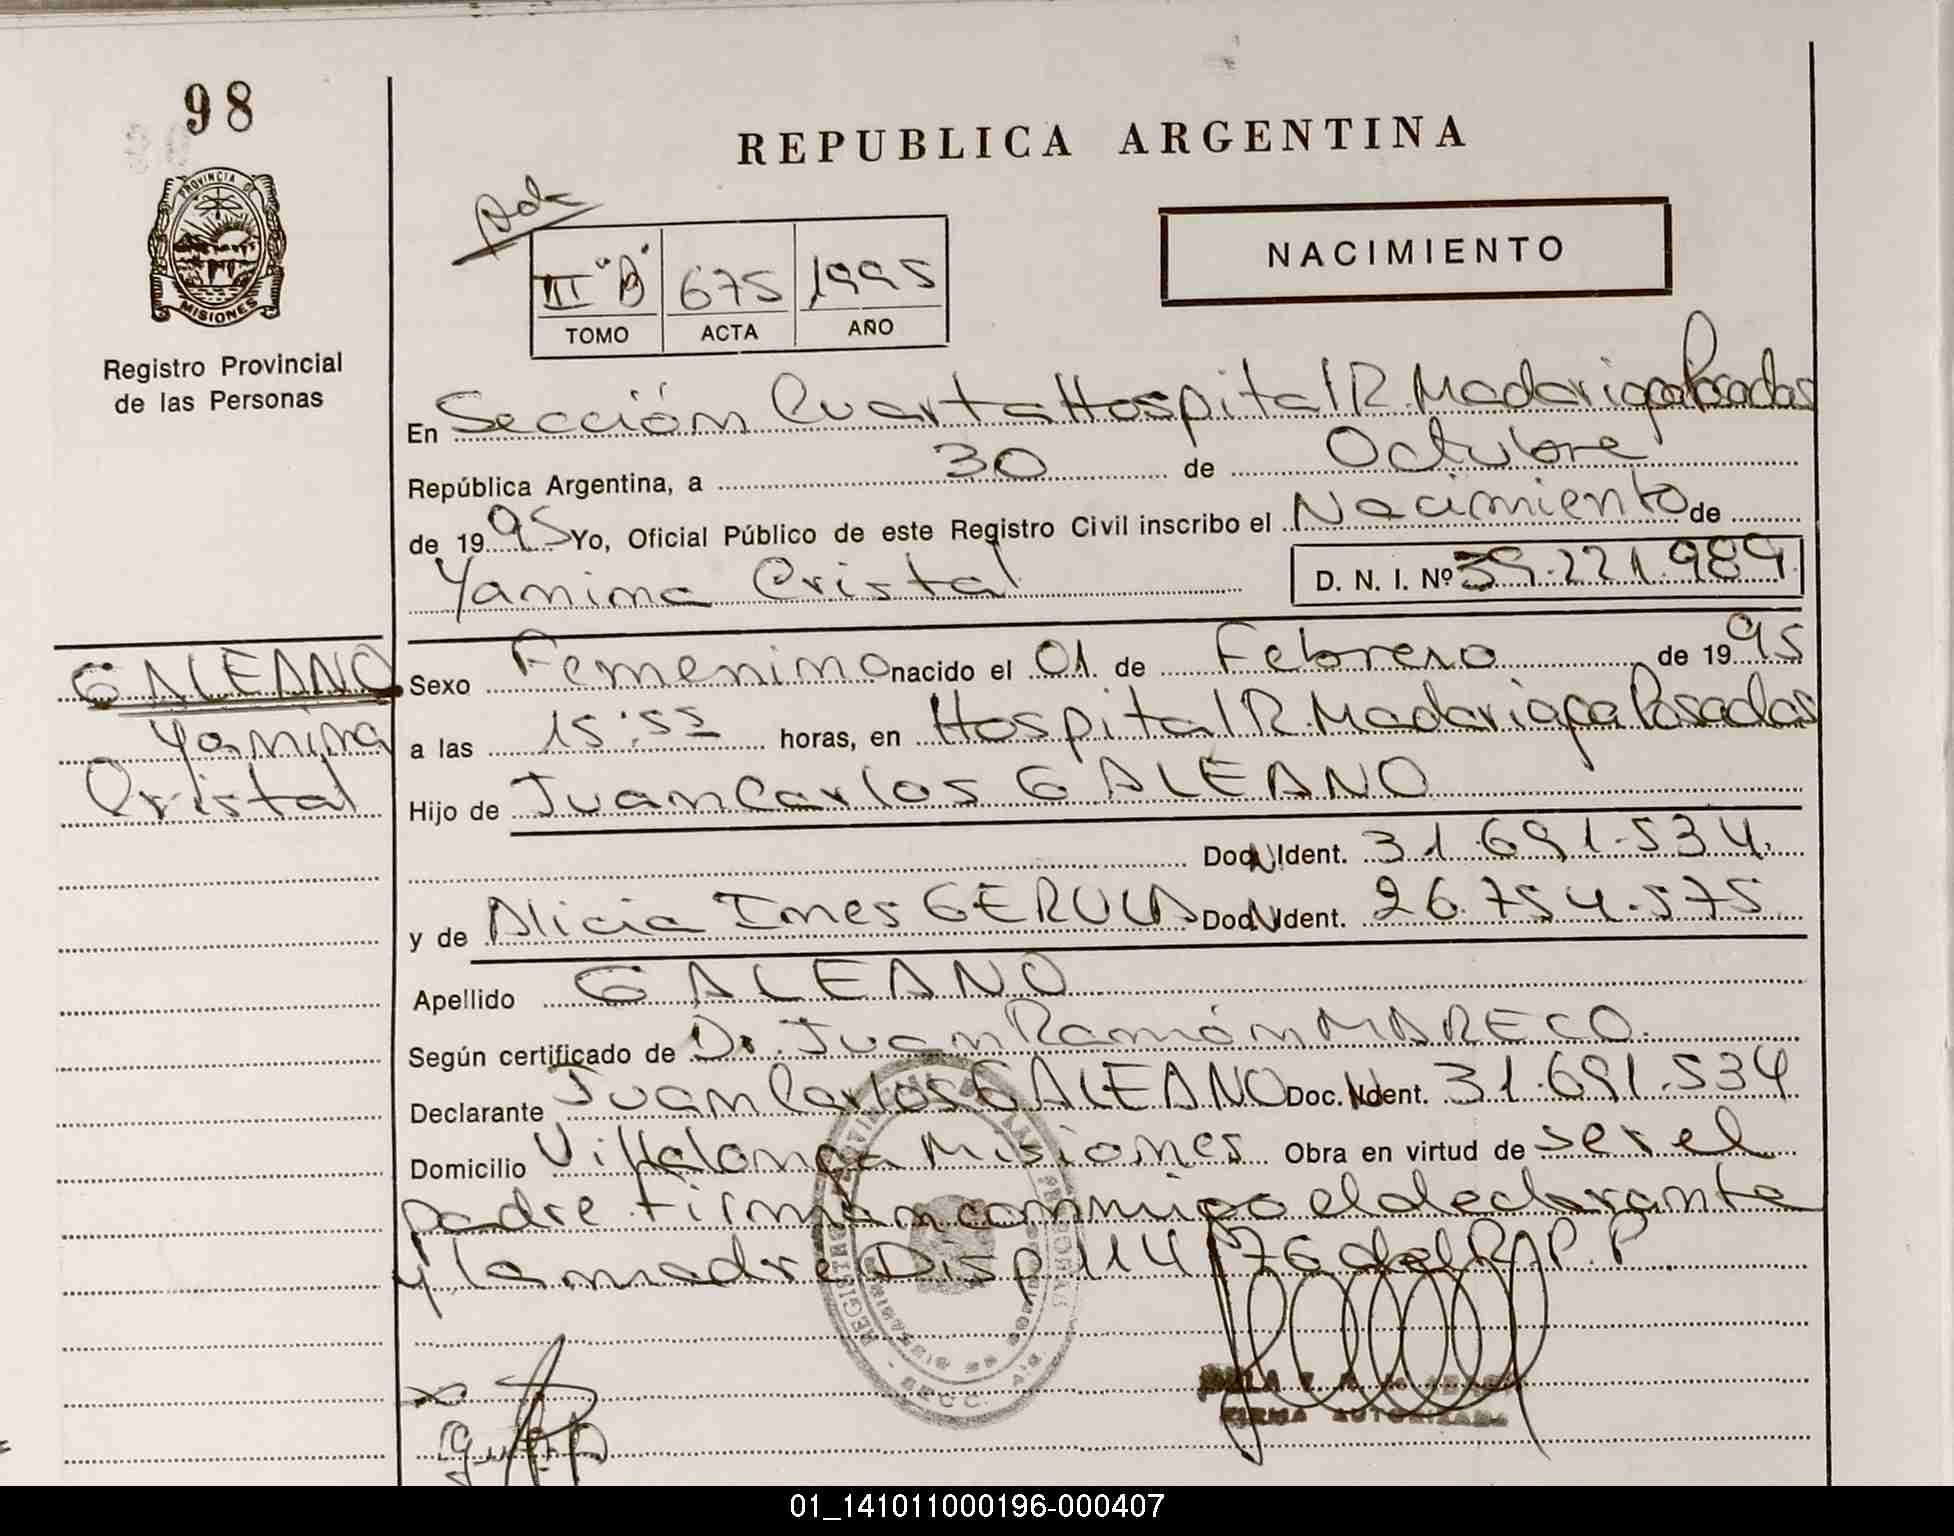 98
PROVINCIA DE
MISIONES
Registro Provincial
de las Personas
REPUBLICA ARGENTINA
NACIMIENTO
III "B" 675 1995
TOMO ACTA AÑO
En Sección Cuarta Hospital R. Madariaga Posadas
República Argentina, a 30 de Octubre
de 1995 Yo, Oficial Público de este Registro Civil inscribo el Nacimiento de
Yanina Cristal D. N. I. Nº 39.221.989
GALEANO
Yanina
Cristal
Sexo Femenino nacido el 01. de Febrero de 1995
a las 15:55 horas, en Hospital R. Madariaga Posadas
Hijo de Juan Carlos GALEANO
Doc. N Ident. 31.691.534.
y de Alicia Ines GERULA Doc. N Ident. 26.754.575
Apellido GALEANO
Según certificado de Dr. Juan Ramón MARECO.
Declarante Juan Carlos GALEANO Doc. N Ident. 31.691.534
Domicilio Villalonga Misiones Obra en virtud de ser el
padre. firman conmigo el declarante
y la madre Disp 114/76 del R.P.P.
FIRMA AUTORIZADA
01_141011000196-000407